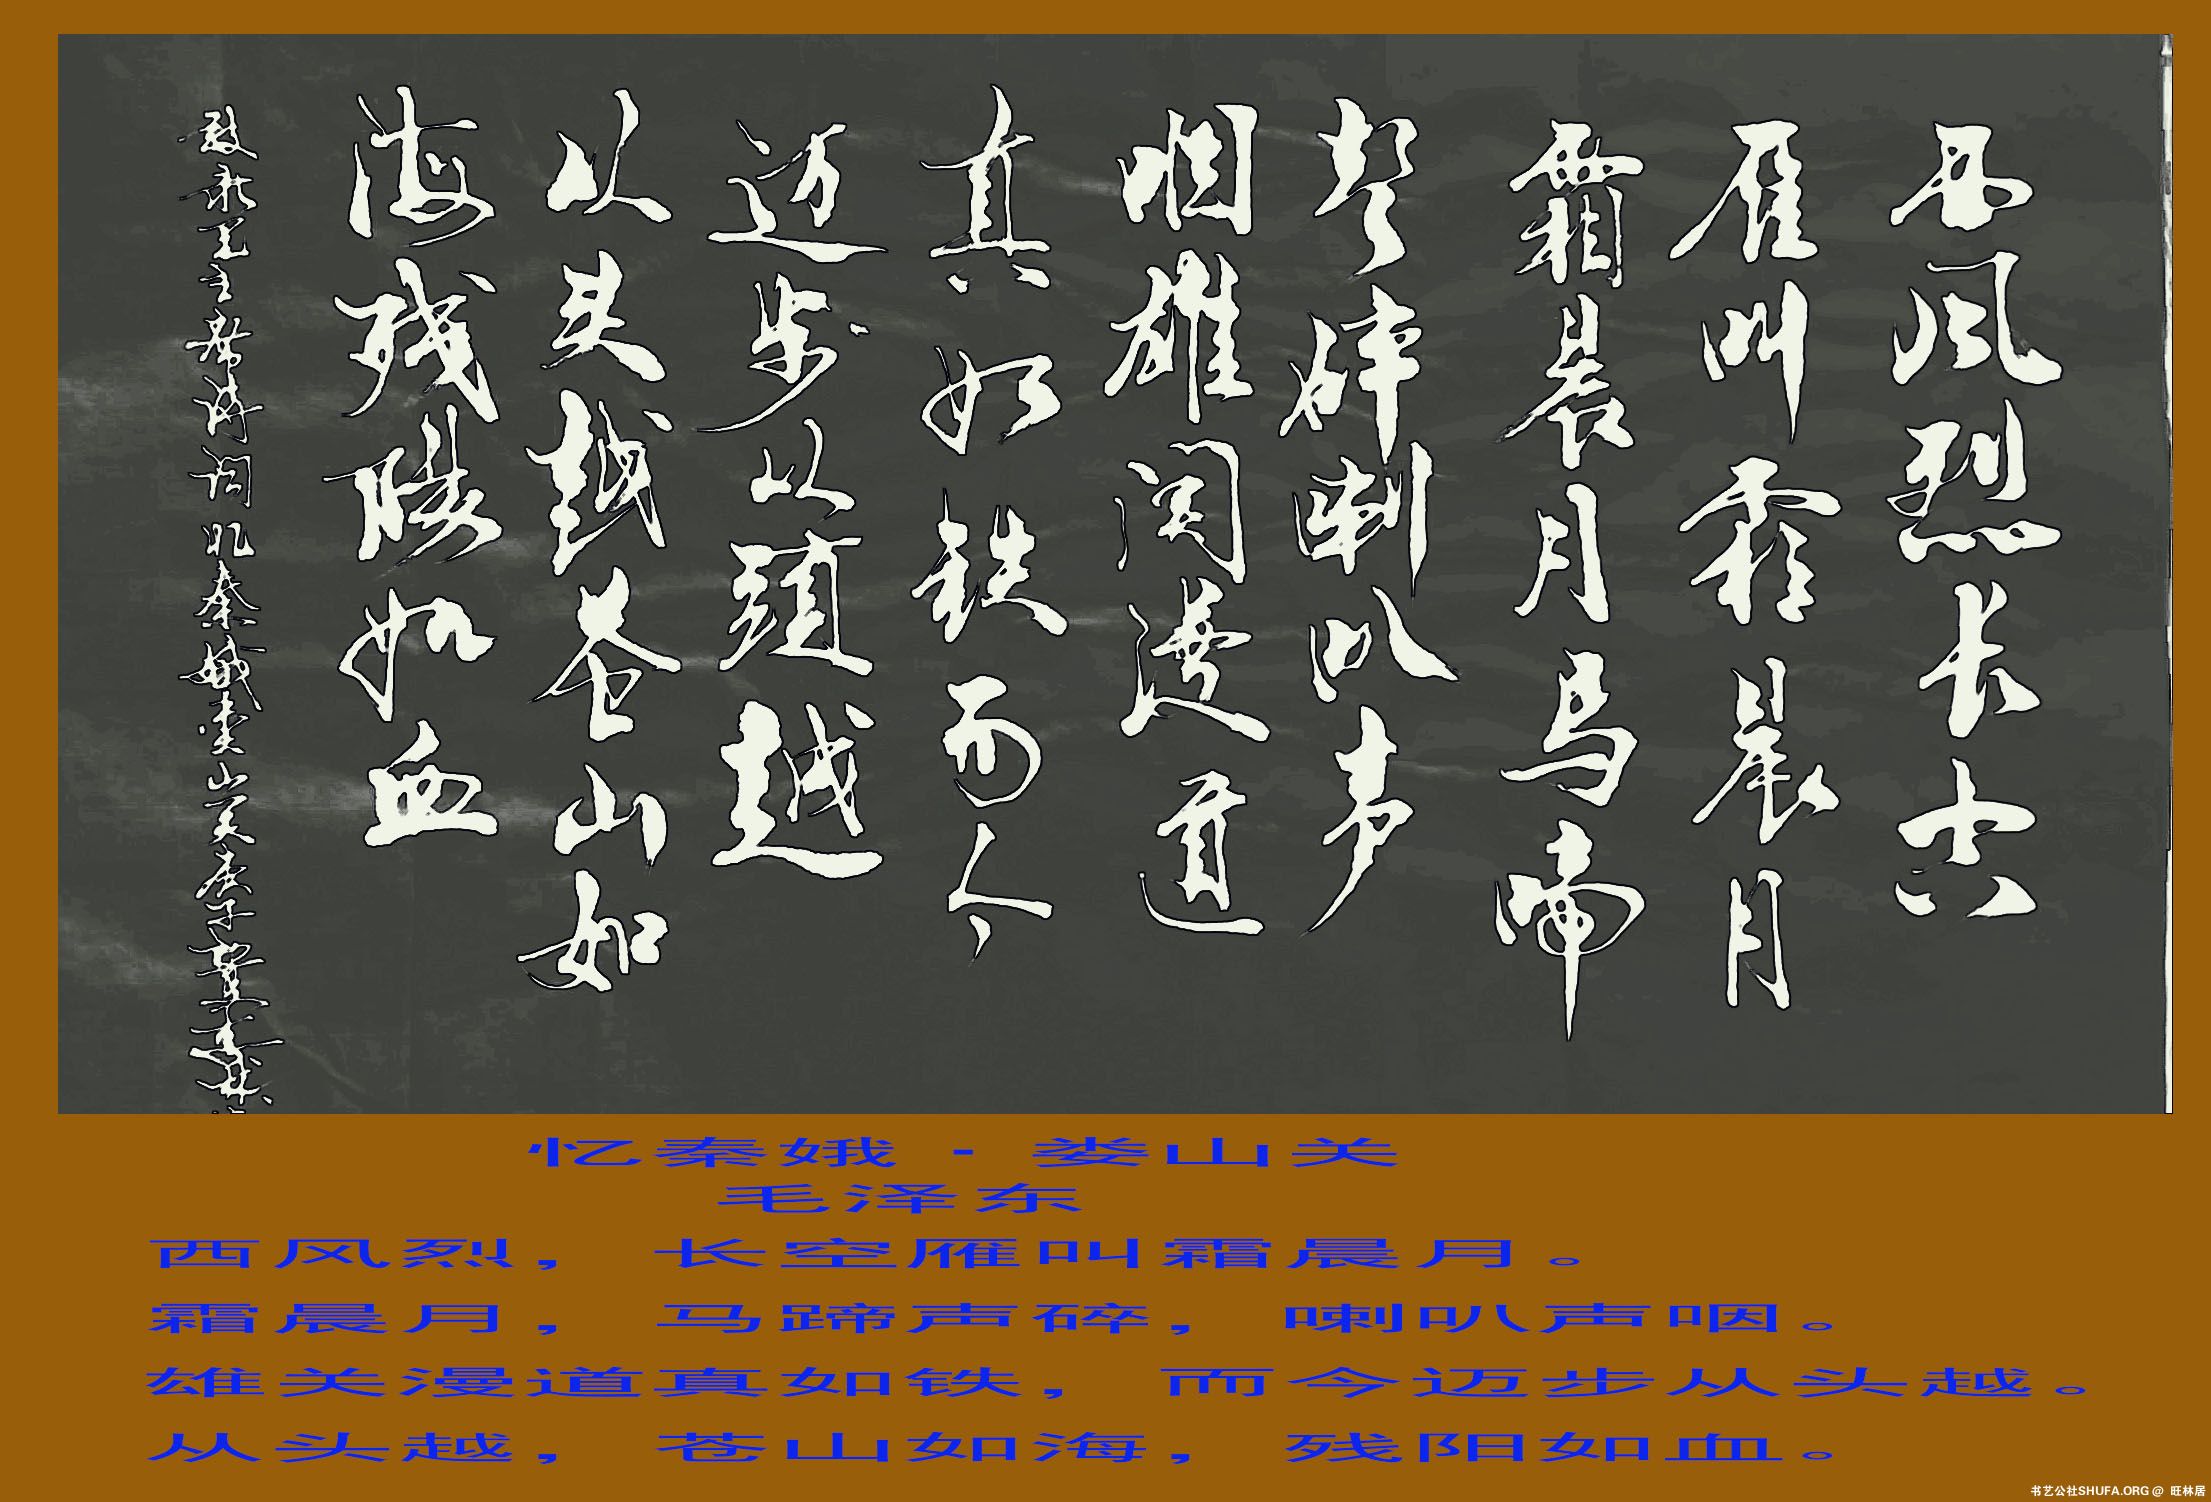 西风烈长空
雁叫霜晨月
霜晨月马啼
声碎喇叭声
咽雄关漫道
真如铁而今
迈步从头越
从头越苍山如
海残阳如血
敬录毛主席诗词忆秦娥娄山关庚子
忆秦娥 - 娄山关
毛泽东
西风烈，长空雁叫霜晨月。
霜晨月，马蹄声碎，喇叭声咽。
雄关漫道真如铁，而今迈步从头越。
从头越，苍山如海，残阳如血。
书艺公社SHUFA.ORG @ 旺林居